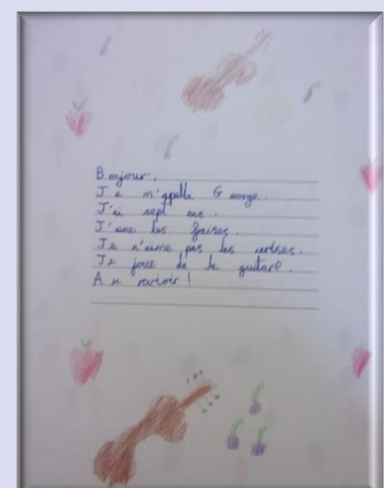 Bonjour,
Je m'apelle George.
J'ai sept ans.
J'aime les fraises.
Je n'aime pas les cerises.
Je joue de la guitare.
Au revoir!